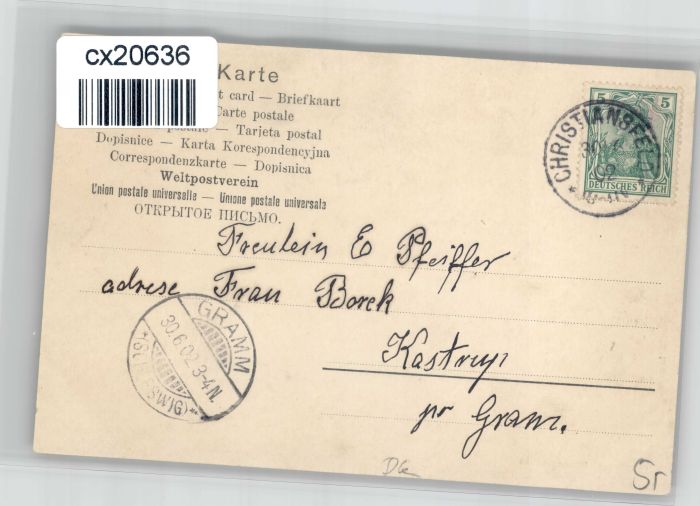 cx20636
Karte
card — Briefkaart
Carte postale
postale — Tarjeta postal
Dopisnice — Karta Korespondencyjna
Correspondenzkarte — Dopisnica
Weltpostverein
Union postale universelle — Unione postale universale
ОТКРЫТОЕ ПИСЬМО.
5 5
DEUTSCHES REICH
CHRISTIANSFELD
Freulein E Pfeiffer
adrese Frau Borek
Kastrup
pr Gram.
GRAMM
30.6.02 3-4N.
(SCHLESWIG)
Sr